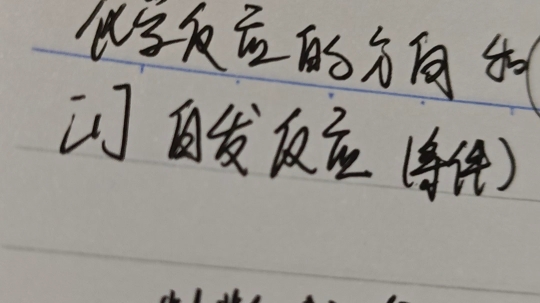 化学反应的方向
[1] 自发反应 (条件)